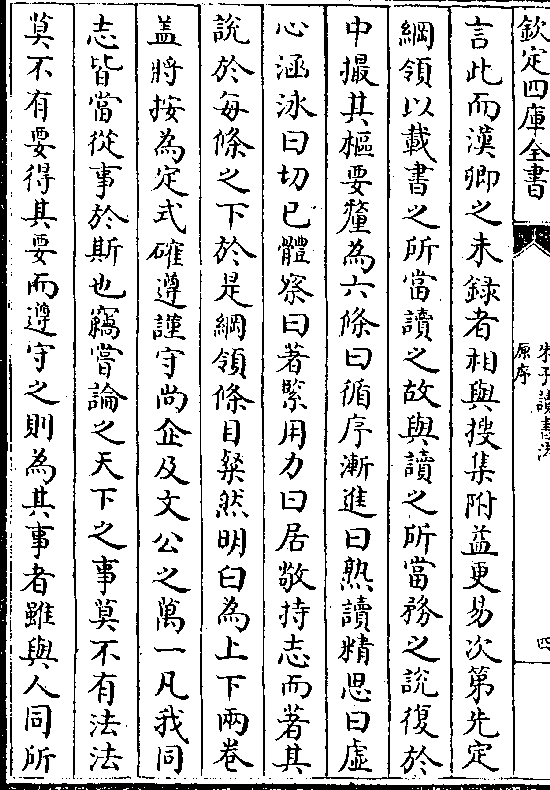 欽定四庫全書
朱子讀書法
原序
四
言此而漢卿之未錄者相與搜集附益更易次第先定
綱領以載書之所當讀之故與讀之所當務之說復於
中撮其樞要釐為六條曰循序漸進曰熟讀精思曰虛
心涵泳曰切已體察曰著緊用力曰居敬持志而著其
說於每條之下於是綱領條目粲然明白為上下兩卷
盖將按為定式確遵謹守尚企及文公之萬一凡我同
志皆當從事於斯也竊嘗論之天下之事莫不有法法
莫不有要得其要而遵守之則為其事者雖與人同所